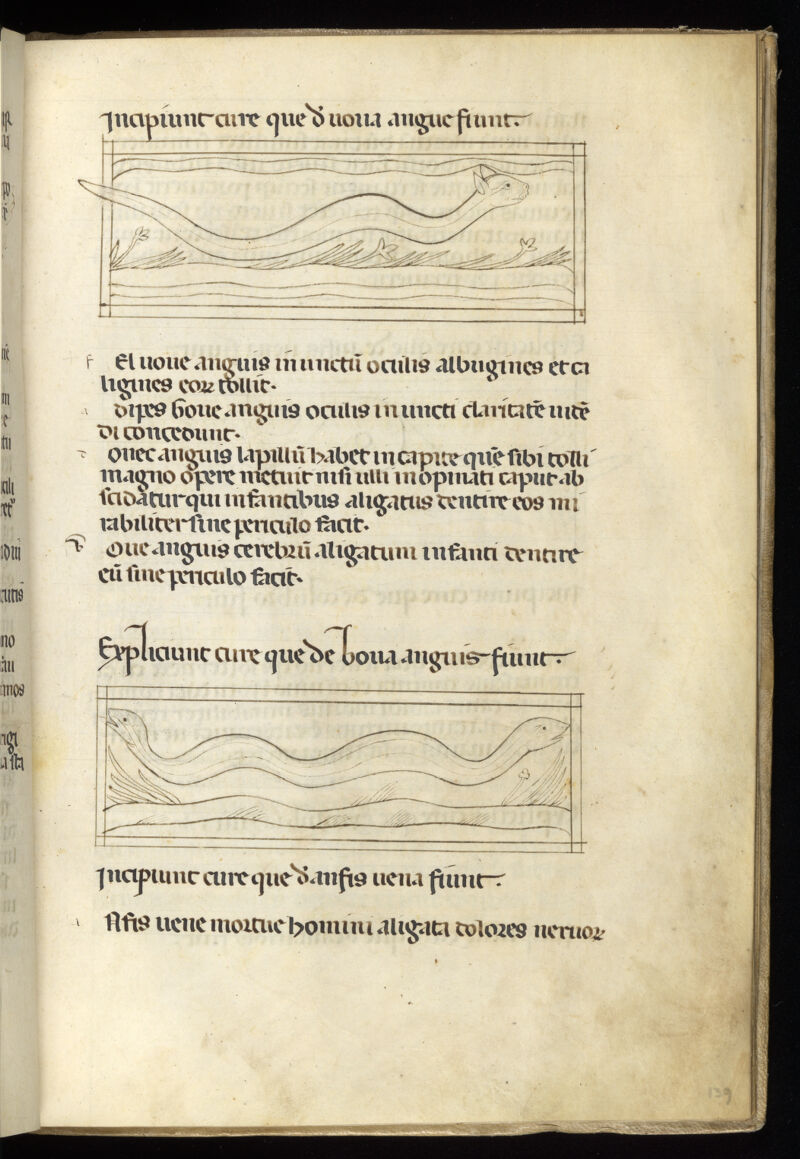 Incipiunt cure que d̄ uoua angue fiunt.
f El uoue anguis in unctū oculis albugines et ca
ligines eoꝝ tollit.
a dipes boue anguis oculis in uncti claritatē uidē
di concedunt.
ouec anguis lapillū habet in capite quē sibi tolli
magno opere metuit nisi illi inopinati caput ab
scidatur qui infantibus aligatus dentire eos mi
rabiliter sine periculo facit.
oue anguis cerebrū aligatum infanti dentire
eū sine periculo facit.
Expliciunt cure que de boua anguis fiunt.
Incipiunt cure que d̄ anfis uena fiunt.
Nfis uene mortue homini aligata dolores neruoꝝ
139